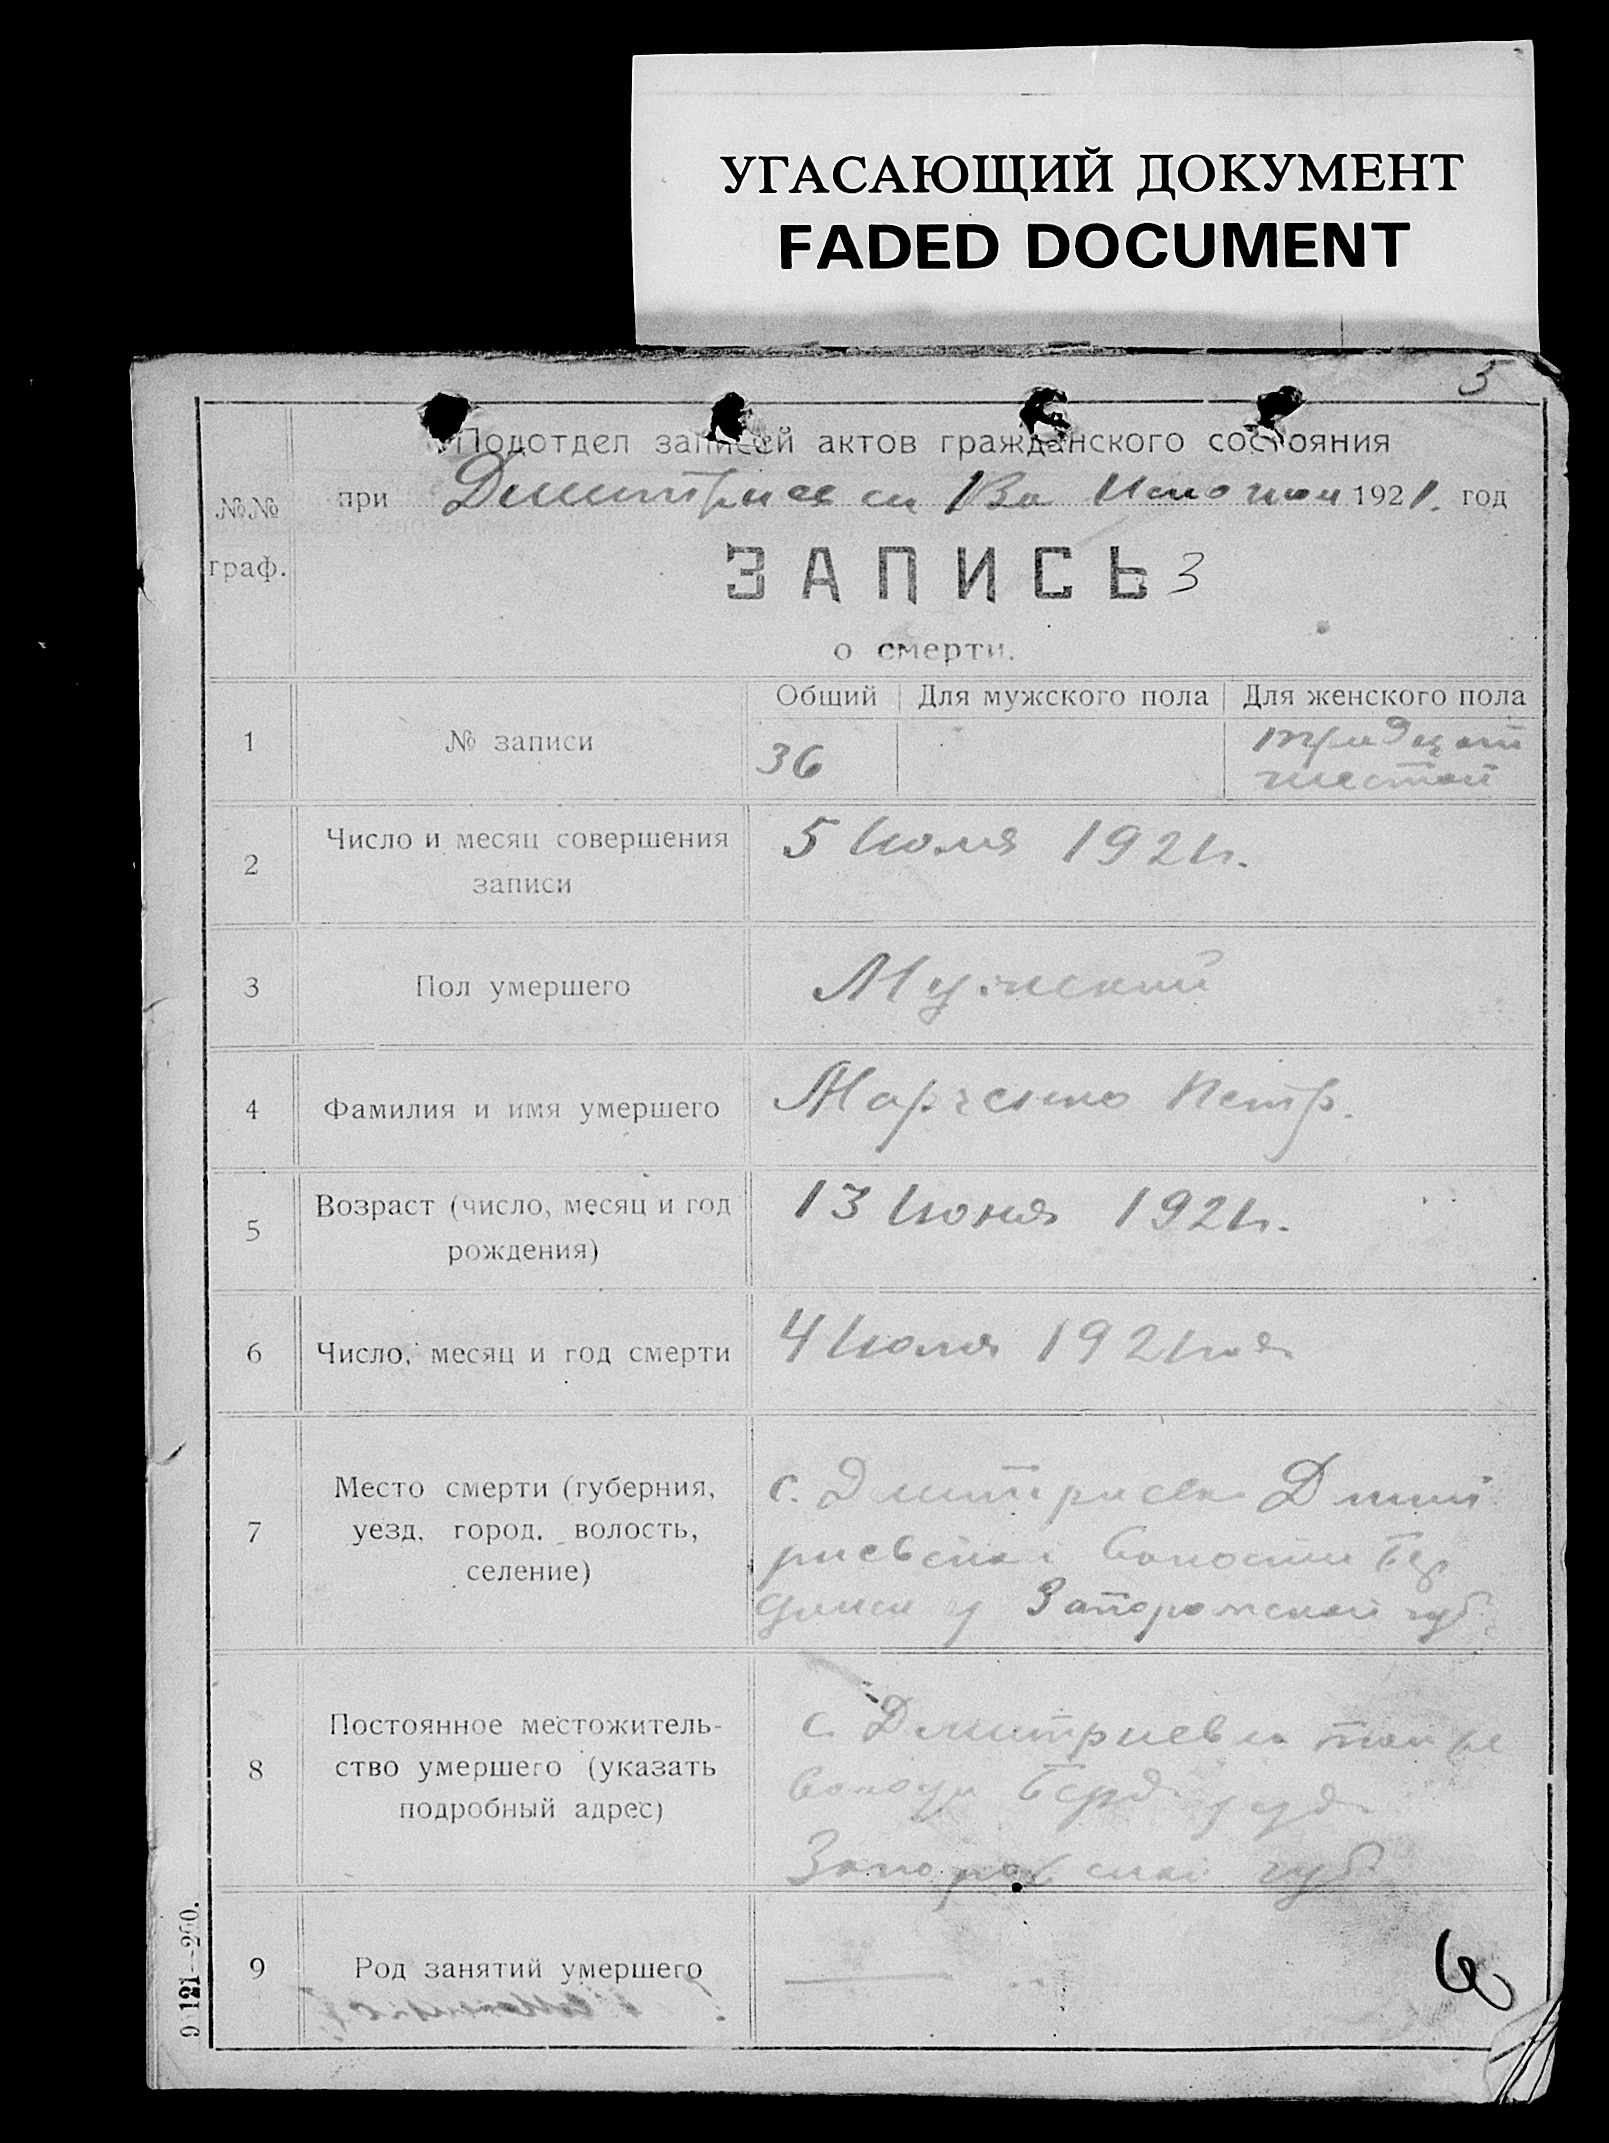 УГАСАЮЩИЙ ДОКУМЕНТ
FADED DOCUMENT
5
Подотдел записей актов гражданского состояния
№№
граф.
при 1921. год
ЗАПИСЬ 3
о смерти.
Общий Для мужского пола Для женского пола
1 № записи 36 тридцат
шестой
2 Число и месяц совершения
записи
5 Июля 1921г.
3 Пол умершего Мужский
4 Фамилия и имя умершего Марченко Петр.
5 Возраст (число, месяц и год
рождения)
13 Июня 1921г.
6 Число, месяц и год смерти 4 Июля 1921
7 Место смерти (губерния,
уезд, город, волость,
селение)
с. Дмитриевка Дмит
риевской Волости Бер
у Запорожской губ.
8 Постоянное местожитель-
ство умершего (указать
подробный адрес)
с. Дмитриевка
Берд.
Запорожской губ
9 Род занятий умершего
6